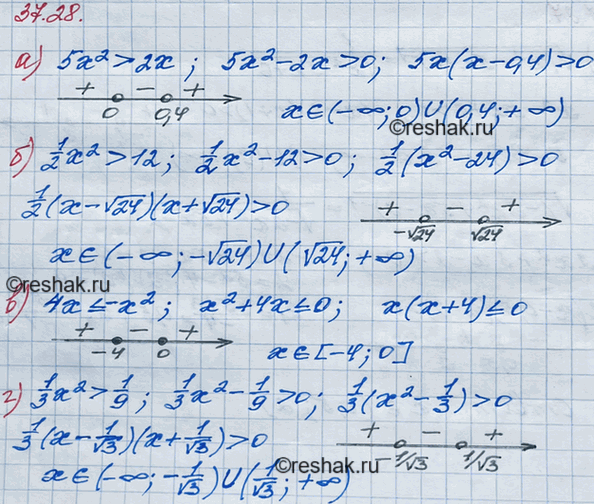 37.28.
а) 5x² > 2x ; 5x² - 2x > 0 ; 5x(x - 0,4) > 0
+ - +
0 0,4
x ∈ (-∞; 0) U (0,4; +∞)
©reshak.ru
б) 1/2 x² > 12 ; 1/2 x² - 12 > 0 ; 1/2 (x² - 24) > 0
1/2 (x - √24)(x + √24) > 0
+ - +
-√24 √24
x ∈ (-∞; -√24) U (√24; +∞)
©reshak.ru
в) 4x ≤ -x² ; x² + 4x ≤ 0 ; x(x + 4) ≤ 0
+ - +
-4 0
x ∈ [-4; 0]
г) 1/3 x² > 1/9 ; 1/3 x² - 1/9 > 0 ; 1/3 (x² - 1/3) > 0
1/3 (x - 1/√3)(x + 1/√3) > 0
+ - +
-1/√3 1/√3
x ∈ (-∞; -1/√3) U (1/√3; +∞)
©reshak.ru